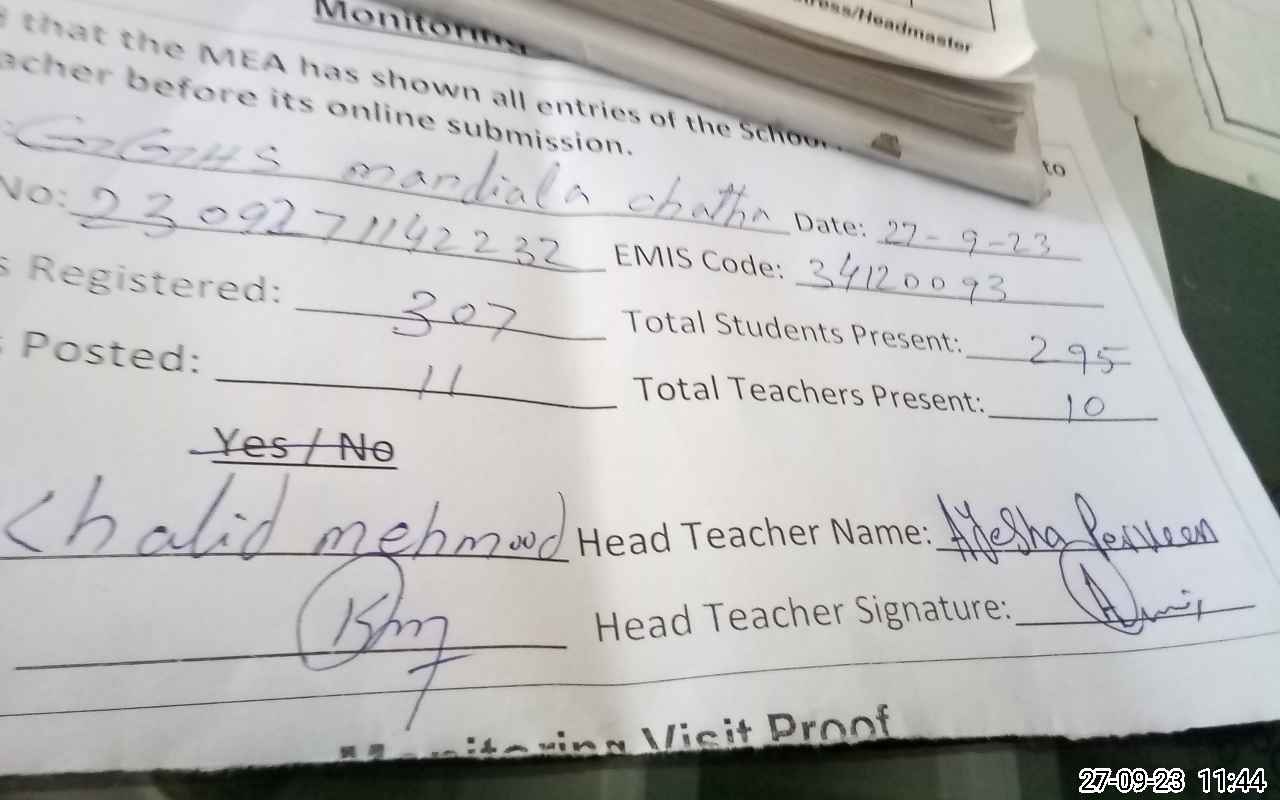 ress/Headmaster
Monitoring
that the MEA has shown all entries of the School to
acher before its online submission.
GGHS mandiala chatha Date: 27-9-23
No: 2309271142232 EMIS Code: 34120093
s Registered: 307 Total Students Present: 295
s Posted: 11 Total Teachers Present: 10
Yes / No
Khalid mehmood Head Teacher Name: Ayesha Perveen
Head Teacher Signature:
Monitoring Visit Proof
27-09-23 11:44